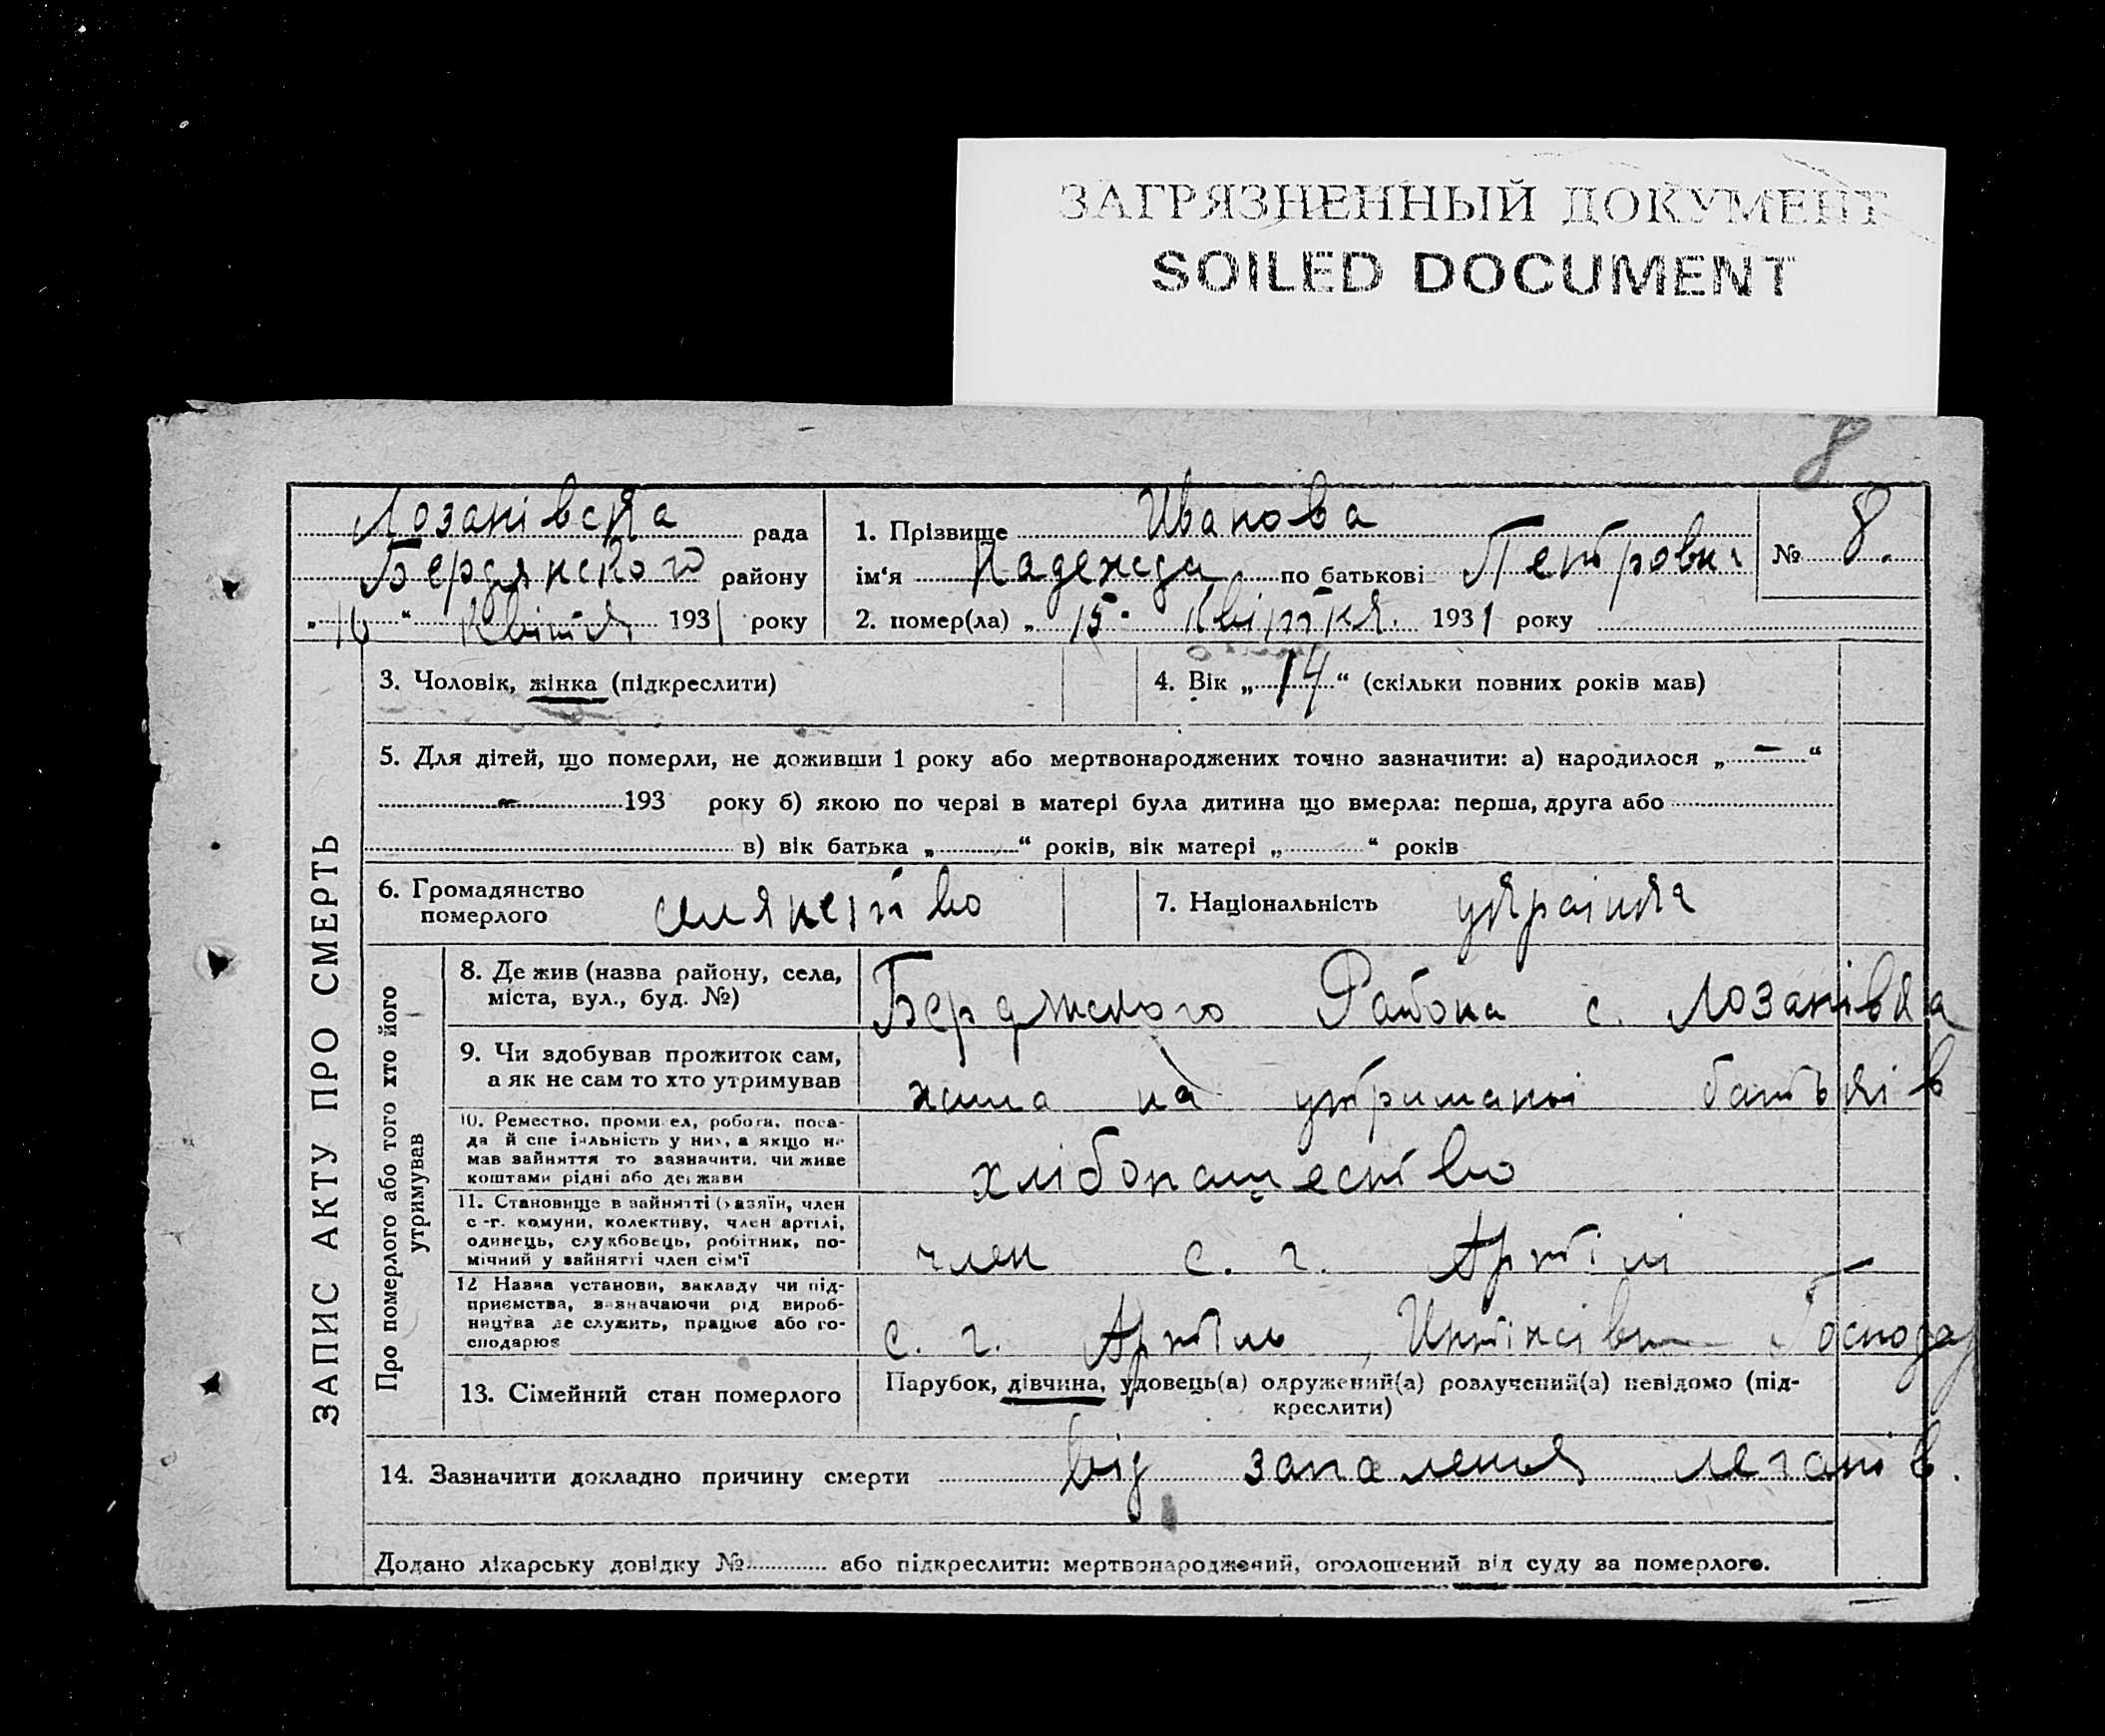 ЗАГРЯЗНЕННЫЙ ДОКУМЕНТ
SOILED DOCUMENT
8
Лозанівска рада
Бердянского району
„16“ Квітня 1931 року
1. Прізвище Иванова
ім‘я Надежда по батькові Петровна
2. помер(ла) „15. Квітня. 1931 року
№ 8.
ЗАПИС АКТУ ПРО СМЕРТЬ
3. Чоловік, жінка (підкреслити)
4. Вік „14“ (скільки повних років мав)
5. Для дітей, що померли, не доживши 1 року або мертвонароджених точно зазначити: а) народилося „—“
— 193 року б) якою по черві в матері була дитина що вмерла: перша, друга або
в) вік батька „ “ років, вік матері „ “ років
6. Громадянство померлого
селянство
7. Національність украінка
Про померлого або того хто його утримував
8. Де жив (назва району, села,
міста, вул., буд. №)
Бердянского Района с. Лозанівка
9. Чи здобував прожиток сам,
а як не сам то хто утримував
жила на утриманні батьків
10. Ремество, промисел, робота, поса-
да й спеціальність у них, а якщо не
мав зайняття то зазначити, чи живе
коштами рідні або держави
хлібопашество
11. Становище в зайнятті (хазяїн, член
с.-г. комуни, колективу, член артілі,
одинець, службовець, робітник, по-
мічний у зайнятті член сім'ї
член с. г. Артілі —
12 Назва установи, закладу чи під-
приємства, зазначаючи рід вироб-
ництва де служить, працює або го-
сподарює
с. г. Артіль
13. Сімейний стан померлого
Парубок, дівчина, удовець(а) одружений(а) розлучений(а) невідомо (під-
креслити)
14. Зазначити докладно причину смерти від запалення леганів.
Додано лікарську довідку № або підкреслити: мертвонароджений, оголошений від суду за померлого.